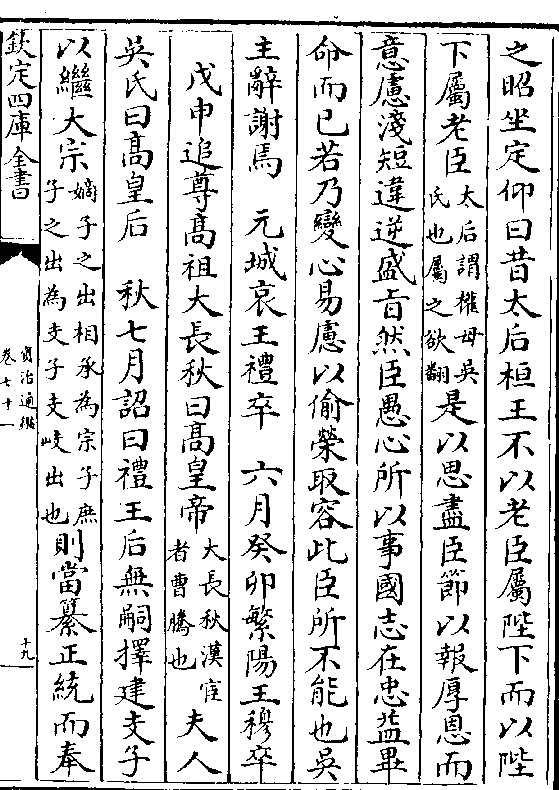 之昭坐定仰曰昔太后桓王不以老臣屬陛下而以陛
下屬老臣太后謂權母吳氏也屬之欲翻是以思盡臣節以報厚恩而
意慮淺短違逆盛旨然臣愚心所以事國志在忠益畢
命而已若乃變心易慮以偷榮取容此臣所不能也吳
主辭謝焉　元城哀王禮卒　六月癸卯繁陽王穆卒
戊申追尊髙祖大長秋曰髙皇帝大長秋漢宦者曹騰也夫人
吳氏曰髙皇后　秋七月詔曰禮王后無嗣擇建支子
以繼大宗嫡子之出相承為宗子庶子之出為支子支岐出也則當纂正統而奉
欽定四庫全書
資治通鑑
卷七十一
十九